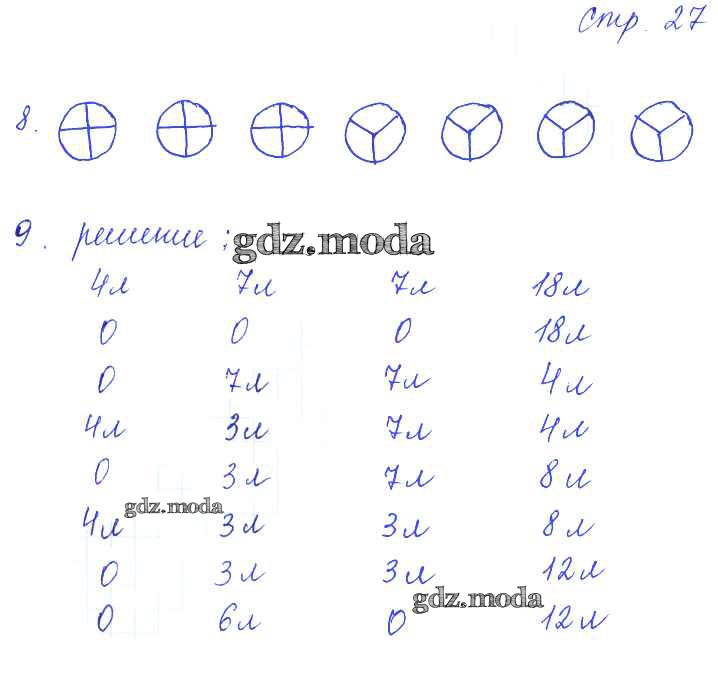 стр. 27
8.
9. решение:
gdz.moda
4л 7л 7л 18л
0 0 0 18л
0 7л 7л 4л
4л 3л 7л 4л
0 3л 7л 8л
gdz.moda
4л 3л 3л 8л
0 3л 3л 12л
gdz.moda
0 6л 0 12л